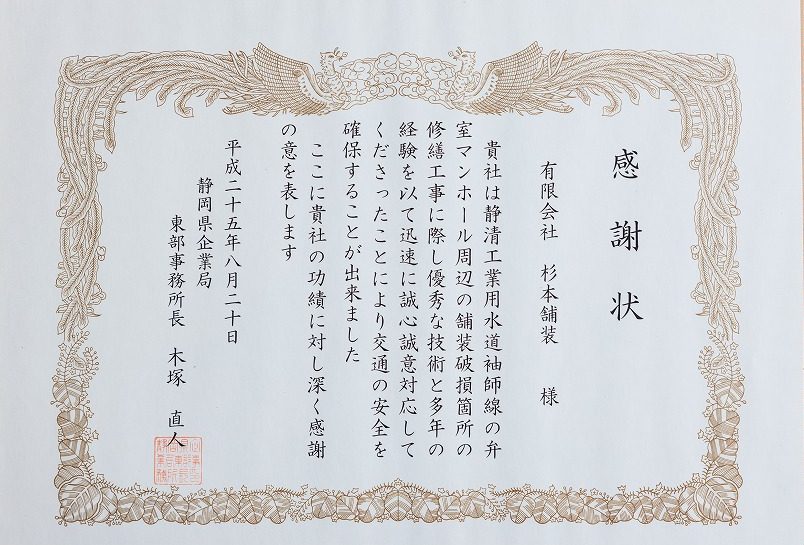 感謝状
有限会社 杉本舗装 様
貴社は静清工業用水道袖師線の弁
室マンホール周辺の舗装破損箇所の
修繕工事に際し優秀な技術と多年の
経験を以て迅速に誠心誠意対応して
くださったことにより交通の安全を
確保することが出来ました
ここに貴社の功績に対し深く感謝
の意を表します
平成二十五年八月二十日
静岡県企業局
東部事務所長 木塚 直人